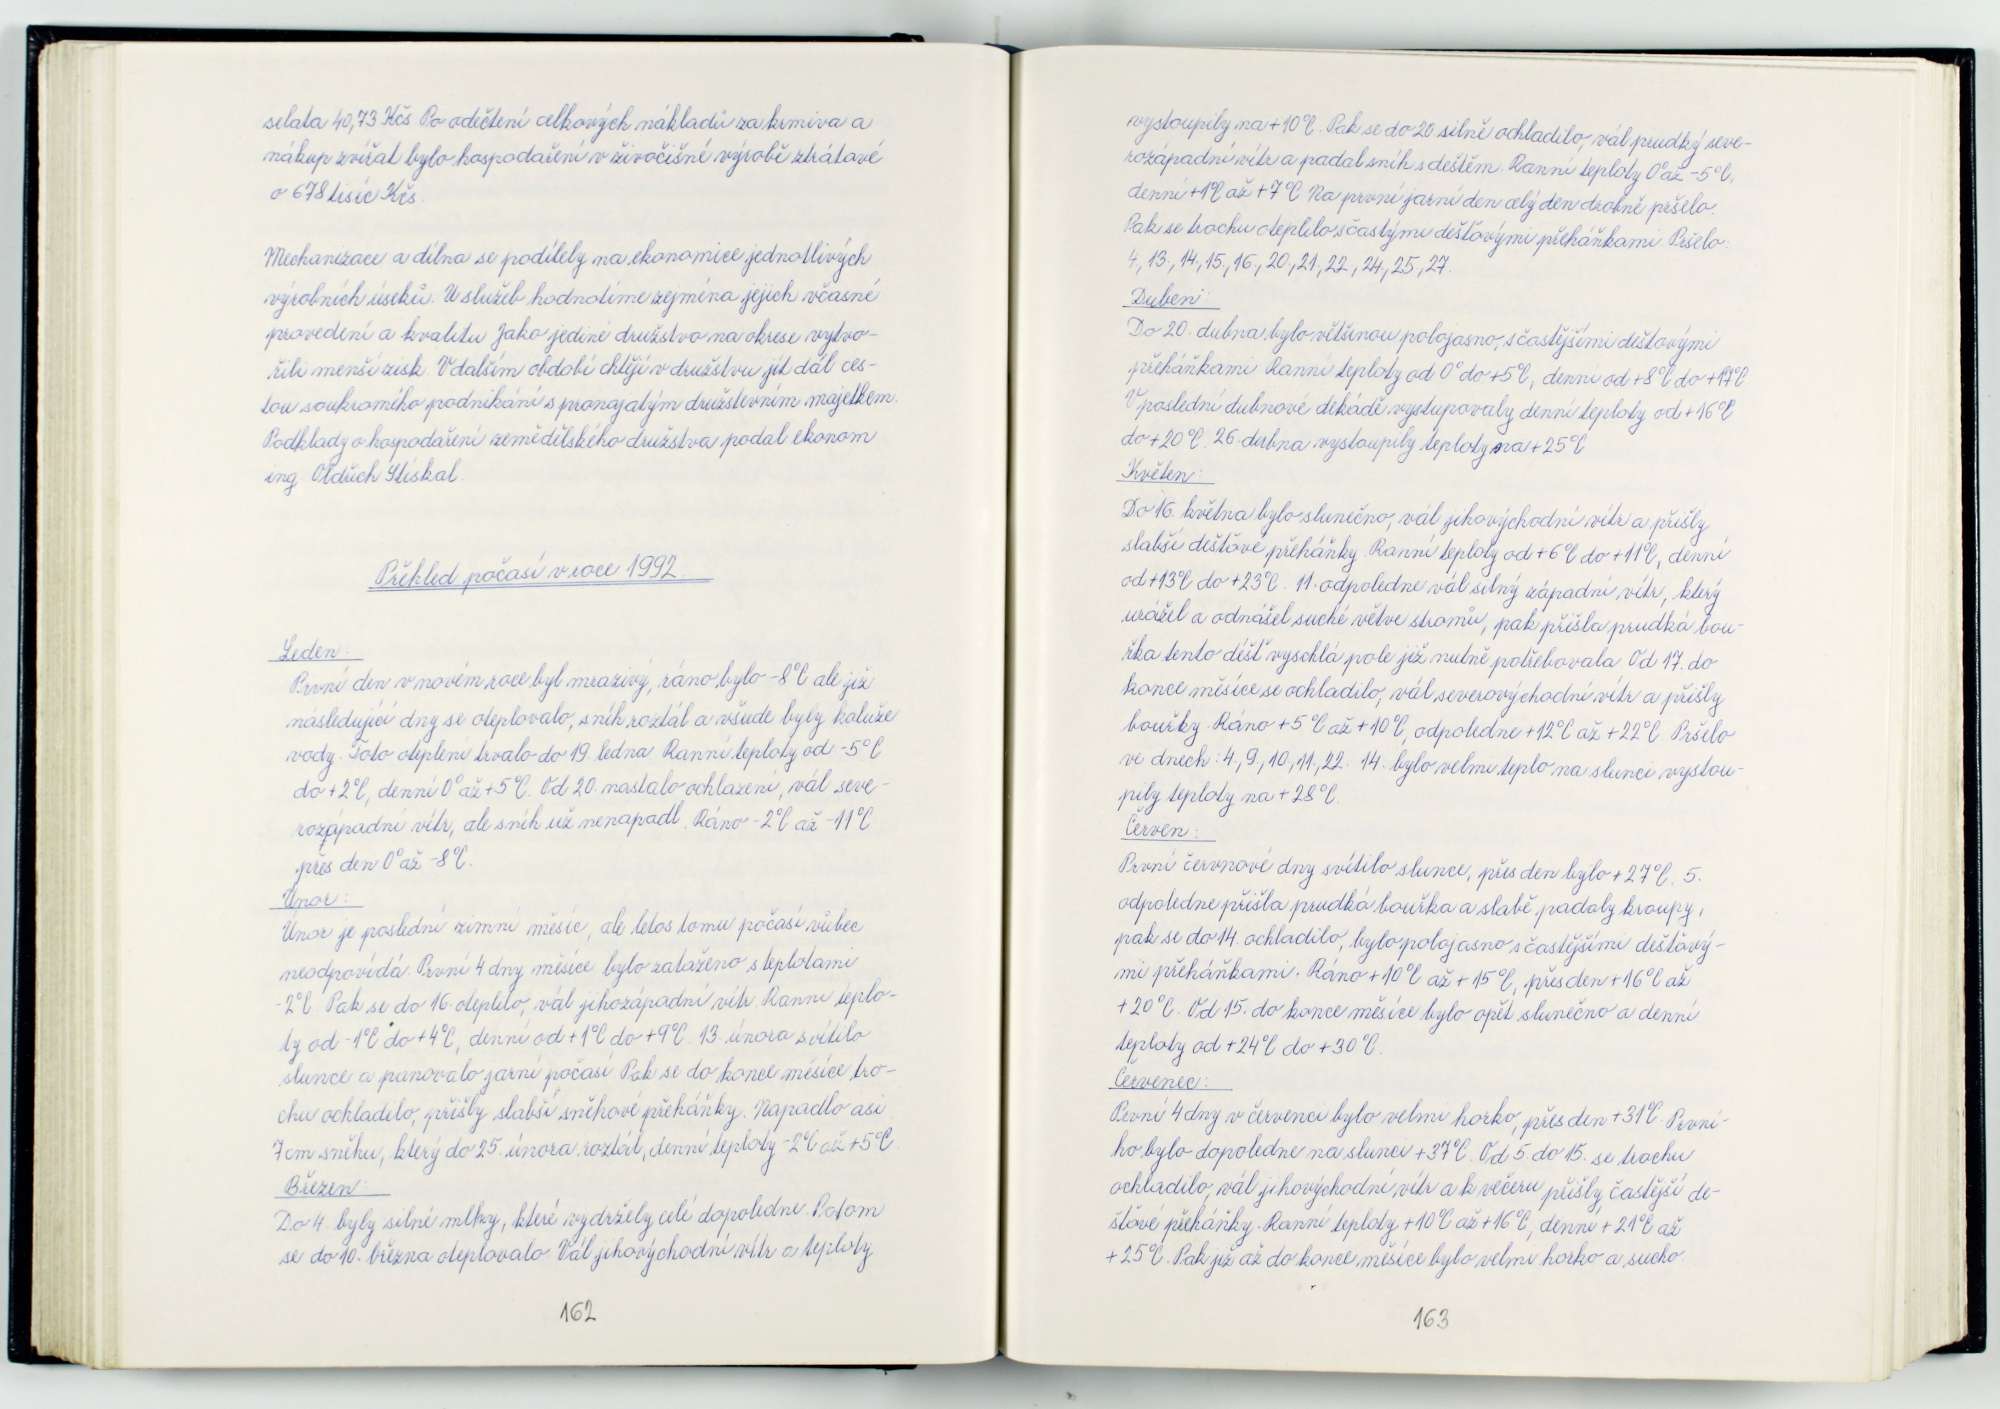 selata 40,73 Kčs Po odečtení celkových nákladů za krmiva a
nákup zvířat bylo hospodaření v živočišné výrobě ztrátavé
o 678 tisíc Kčs.
Mechanizace a dílna se podílely na ekonomice jednotlivých
výrobních úseků. U služeb hodnotíme zejména jejich včasné
provedení a kvalitu Jako jediné družstvo na okrese vytvo-
řili menší zisk. V dalším období chtějí v družstvu jít dál ces-
tou soukromého podnikání s pronajatým družstevním majetkem.
Podklady o hospodaření zemědělského družstva podal ekonom
ing. Oldřich Stískal.
Přehled počasí v roce 1992.
Leden:
První den v novém roce byl mrazivý, ráno bylo -8°C ale již
následující dny se oteplovalo, sníh roztál a všude byly kaluže
vody. Toto oteplení trvalo do 19. ledna Ranní teploty od -5°C
do +2°C, denní 0° až +5°C. Od 20. nastalo ochlazení, vál seve-
rozápadní vítr, ale sníh už nenapadl. Ráno -2°C až -11°C
přes den 0° až -8°C.
Únor:
Únor je poslední zimní měsíc, ale letos tomu počasí vůbec
neodpovídá. První 4 dny měsíce bylo zataženo s teplotami
-2°C Pak se do 16. oteplilo, vál jihozápadní vítr. Ranní teplo-
ty od -1°C do +4°C, denní od +1°C do +9°C. 13. února svítilo
slunce a panovalo jarní počasí Pak se do konce měsíce tro-
chu ochladilo, přišly slabší sněhové přeháňky. Napadlo asi
7 cm sněhu, který do 25. února roztál, denní teploty -2°C až +5°C.
Březen:
Do 4. byly silné mlhy, které vydržely celé dopoledne. Potom
se do 10. března oteplovalo. Vál jihovýchodní vítr a teploty
162
vystoupily na +10°C. Pak se do 20 silně ochladilo, vál prudký seve-
rozápadní vítr a padal sníh s deštěm. Ranní teploty 0° až -5°C,
denní +1°C až +7°C Na první jarní den celý den drobně pršelo.
Pak se trochu oteplilo s častými dešťovými přeháňkami Pršelo:
4., 13., 14., 15., 16., 20., 21., 22., 24., 25., 27.
Duben:
Do 20. dubna bylo většinou polojasno, s častějšími dešťovými
přeháňkami Ranní teploty od 0° do +5°C, denní od +8°C do +17°C
V poslední dubnové dekádě vystupovaly denní teploty od +16°C
do +20°C. 26. dubna vystoupily teploty na +25°C
Květen:
Do 16. května bylo slunečno, vál jihovýchodní vítr a přišly
slabší dešťové přeháňky. Ranní teploty od +6°C do +11°C, denní
od +13°C do +23°C. 11. odpoledne vál silný západní vítr, který
urážel a odnášel suché větve stromů, pak přišla prudká bou-
řka tento déšť vyschlá pole již nutně potřebovala Od 17. do
konce měsíce se ochladilo, vál severovýchodní vítr a přišly
bouřky. Ráno +5°C až +10°C, odpoledne +12°C až +22°C Pršelo
ve dnech: 4., 9., 10., 11., 22. 14. bylo velmi teplo na slunci vystou-
pily teploty na +28°C.
Červen:
První červnové dny svítilo slunce, přes den bylo +27°C. 5.
odpoledne přišla prudká bouřka a slabě padaly kroupy,
pak se do 14. ochladilo, bylo polojasno s častějšími dešťový-
mi přeháňkami. Ráno +10°C až +15°C, přes den +16°C až
+20°C. Od 15. do konce měsíce bylo opět slunečno a denní
teploty od +24°C do +30°C.
Červenec:
První 4 dny v červenci bylo velmi horko, přes den +31°C. První-
ho bylo dopoledne na slunci +37°C. Od 5. do 15. se trochu
ochladilo, vál jihovýchodní vítr a k večeru přišly častější de-
šťové přeháňky. Ranní teploty +10°C až +16°C, denní +21°C až
+25°C. Pak již až do konce měsíce bylo velmi horko a sucho.
163